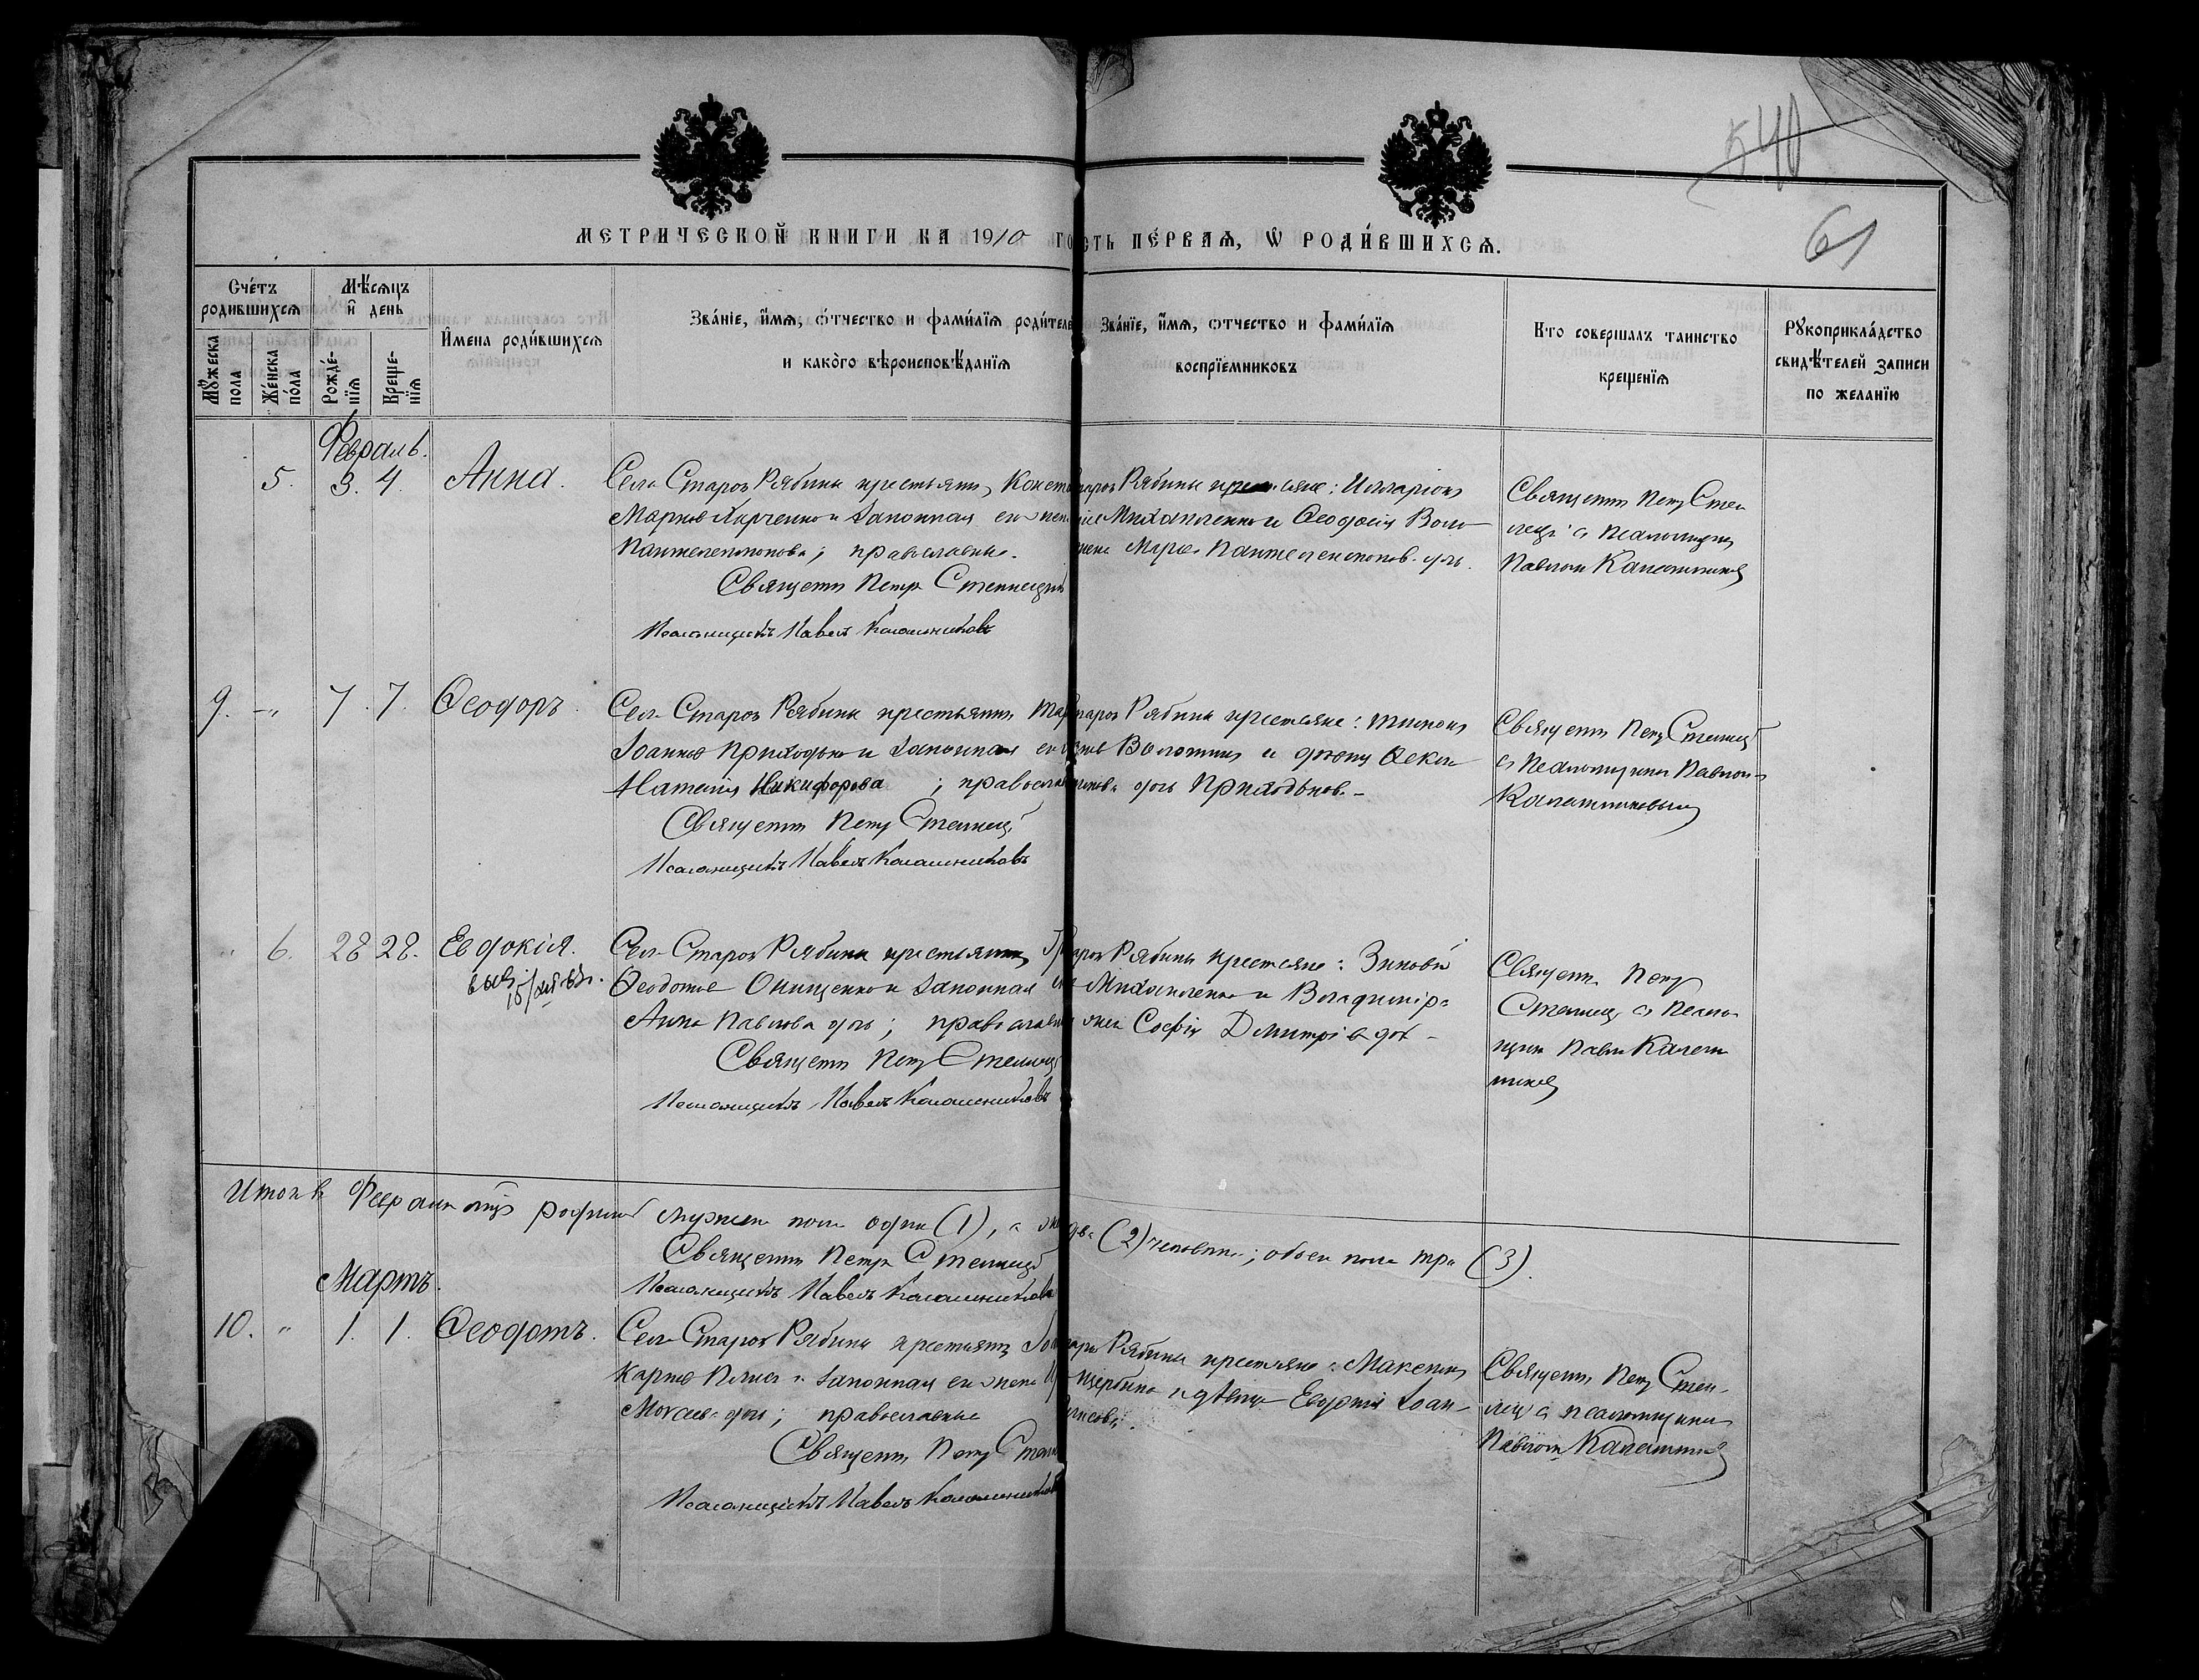 540
61
МЕТРИЧЕСКОЙ КНИГИ НА 1910 ГО
СТЬ ПЕ́РВАѦ, Ѡ РОДИ́ВШИХСѦ.
Сче́тъ родившихсѧ
Мѣ́сѧцъ и҆ день
Мꙋ́жеска пола
Же́нска по́ла
Рожде́-нїѧ
Креще-нїѧ
И҆мена роди́вшихсѧ
Зва́нїе, и҆́мѧ, ѻ҆́тчество и фами́лїѧ роди́теле
и како́гѡ вѣроисповѣ́данїѧ
Зва́нїе, и҆́мѧ, ѻтчество и фами́лїѧ
воспрїе́мниковъ
Кто соверша́лъ таинство
креще́нїѧ
Рꙋкоприкла́дство
свидѣ́телей записи
по жела́нїю
Февраль.
5. 3. 4. Анна.
Села Старой Рябины крестьянинъ Конст
Марковъ Харченко и законная его жен
Пантелеимонова; православные.
Священникъ Петръ Стеллецкій
Псаломщикъ Павелъ Калашниковъ
тарой Рябины крестьяне: Илларіонъ
Михайленко и Ѳеодосія
Марка Пантелеимонова дочь.
Священникъ Петръ Стел
лецкій съ псаломщикомъ
Павломъ Калашниковымъ
9. -„ 7. 7. Ѳеодоръ.
Села Старой Рябины крестьянинъ
Іоанновъ Приходько и законная его
Наталія Никифорова ; православ
Священникъ Петръ Стеллецкій
Псаломщикъ Павелъ Калашниковъ
тарой Рябины крестьяне: Тимонъ
Волошинъ и
дочь Приходькова.
Священникъ Петръ Стеллецкій
съ псаломщикомъ Павломъ
Калашниковымъ
„ 6. 28 28. Евдокія.
Села Старой Рябины крестьянинъ
Ѳеодотовъ Онищенко и законная
Анна Павлова дочь; православные
Священникъ Петръ Стеллецкій
Псаломщикъ Павелъ Калашниковъ
тарой Рябины крестьяне: Зиновій
Михайленко и Владимира
жена Софія Димитріева дочь
Священникъ Петръ
Стеллецкій съ псалом
щикомъ Павломъ Калаш
никовымъ
Итого въ Февралѣ мцѣ родилось мужеска пола одинъ (1), а
два (2) человѣка; обоего пола три (3).
Священникъ Петръ Стеллецкій
Псаломщикъ Павелъ Калашниковъ
Мартъ.
10. „ 1. 1. Ѳеодотъ.
Села Старой Рябины крестьянинъ
Карповъ и законная его жена
дочь; православные
Священникъ Петръ Стелл
Псаломщикъ Павелъ Калашниковъ
тарой Рябины крестьяне:
Щербина и дѣвица Іоан
Священникъ Петръ Стел
лецкій съ псаломщикомъ
Павломъ Калашниковымъ